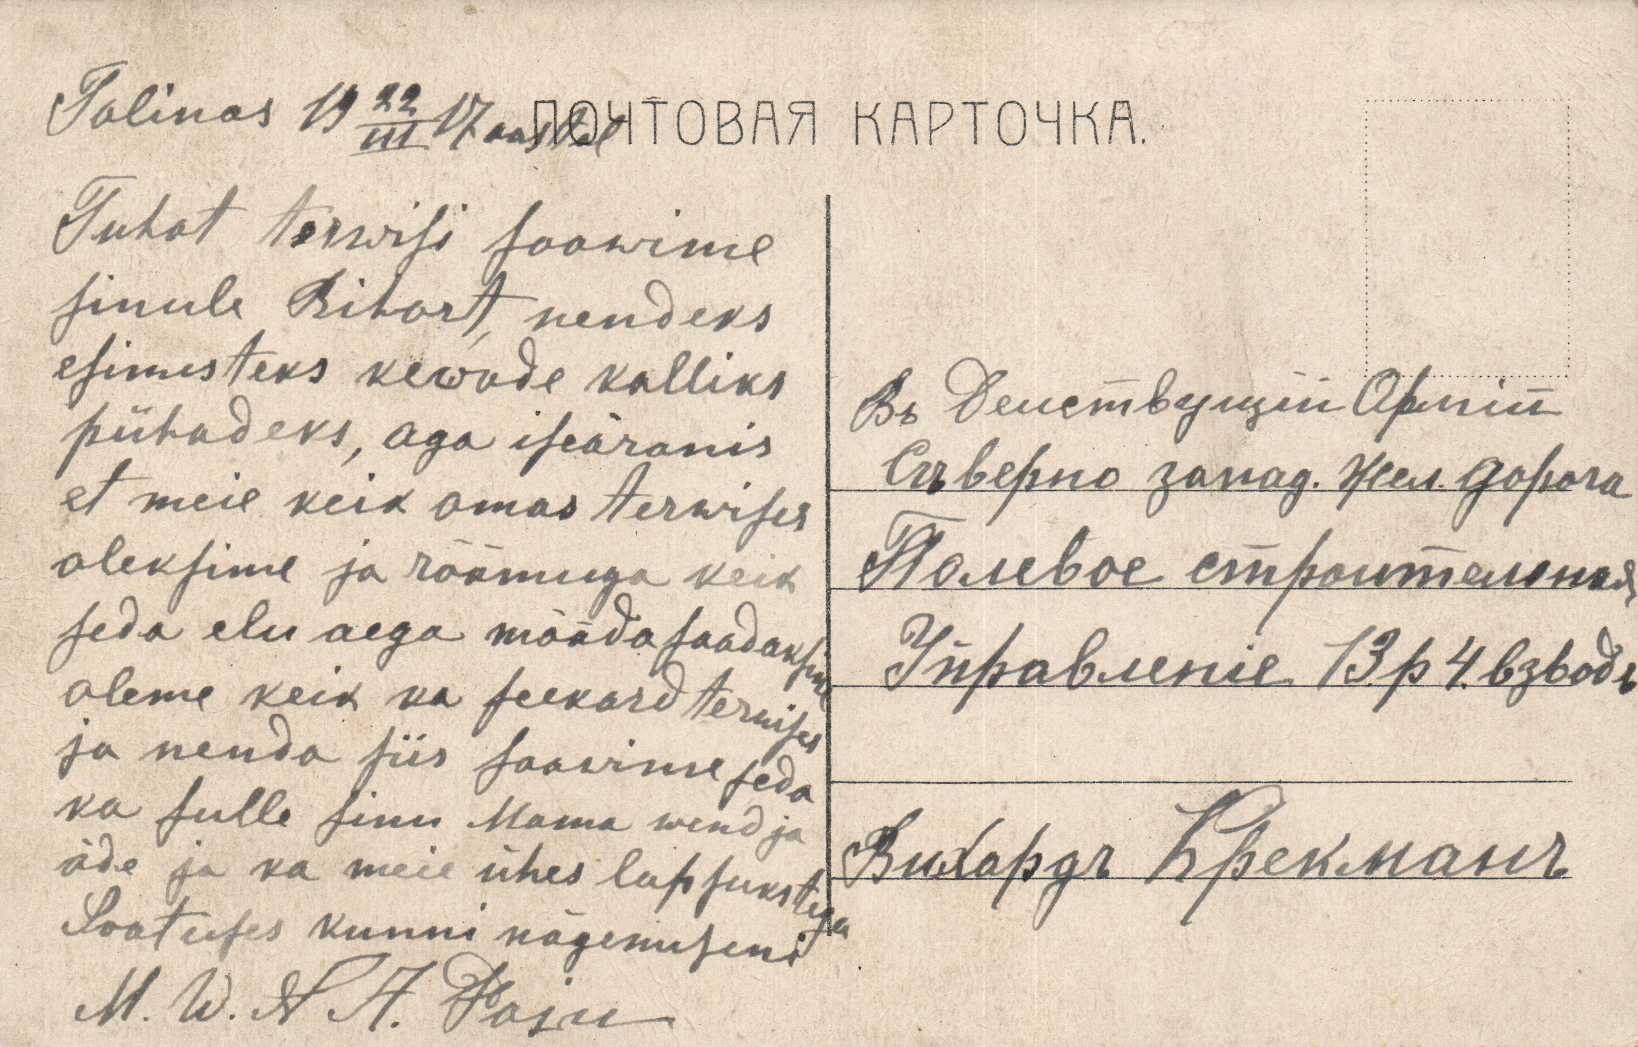 Talinas 19 22/III 17 aastal
ПОЧТОВАЯ КАРТОЧКА.
Tuhat terwisi soowime
sinule Rihart, nendeks
esimesteks kewade kalliks
pühadeks, aga iseäranis
et meie keik omas terwises
oleksime ja rõõmuga keik
seda elu aega mööda saadaksime
oleme keik ka seekord terwises
ja nenda siis soowime seda
ka sulle sinu Mama wend ja
õde ja ka meie ühes lapsukstega
Lootuses kunni nägemiseni
M. W. A. Paju
Въ Деиствущiй Армiй
Съверно запад. Жел. дорога
Полевое строительная
Управленiе 13 р 4. взводъ
Рихардъ Крекманъ